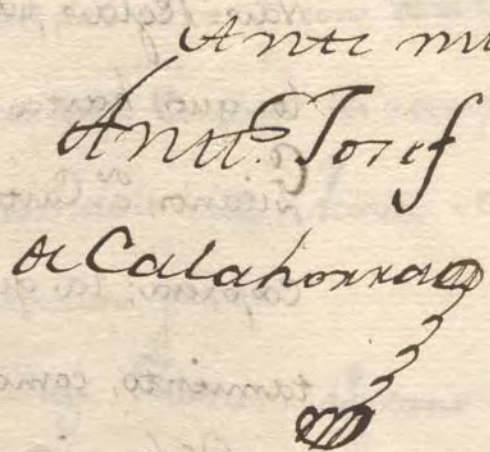 Ante mi
Antt.º Josef
de Calahorra